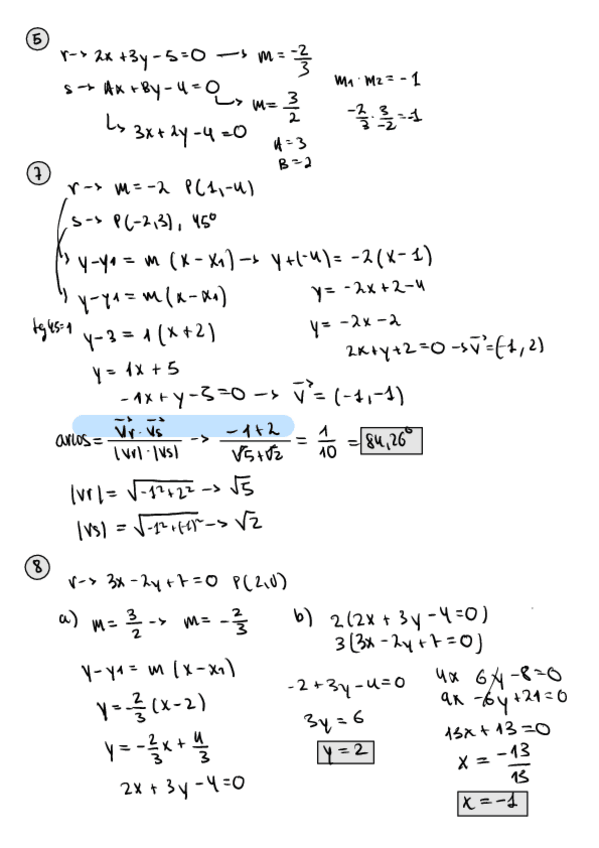 5
r → 2x + 3y - 5 = 0 → m = -2/3
s → Ax + By - 4 = 0
↳ m = 3/2
↳ 3x + 2y - 4 = 0
A = 3
B = 2
m1 · m2 = -1
-2/3 · 3/-2 = -1
7
r → m = -2 P(1,-4)
s → P(-2,3), 45°
y - y1 = m (x - x1) → y + (-4) = -2(x - 1)
y = -2x + 2 - 4
y = -2x - 2
2x + y + 2 = 0 → v⃗ = (-1, 2)
y - y1 = m (x - x1)
tg 45 = 1
y - 3 = 1 (x + 2)
y = 1x + 5
-1x + y - 5 = 0 → v⃗ = (-1, -1)
arcos = v⃗r · v⃗s / |vr| · |vs| → -1 + 2 / √5 + √2 = 1/10 = 84,26°
|vr| = √-1² + 2² → √5
|vs| = √-1² + (-1)² → √2
8
r → 3x - 2y + 7 = 0 P(2,0)
a) m = 3/2 → m = -2/3
y - y1 = m (x - x1)
y = -2/3 (x - 2)
y = -2/3 x + 4/3
2x + 3y - 4 = 0
b) 2(2x + 3y - 4 = 0)
3(3x - 2y + 7 = 0)
-2 + 3y - 4 = 0
3y = 6
y = 2
4x 6y - 8 = 0
9x - 6y + 21 = 0
13x + 13 = 0
x = -13/13
x = -1